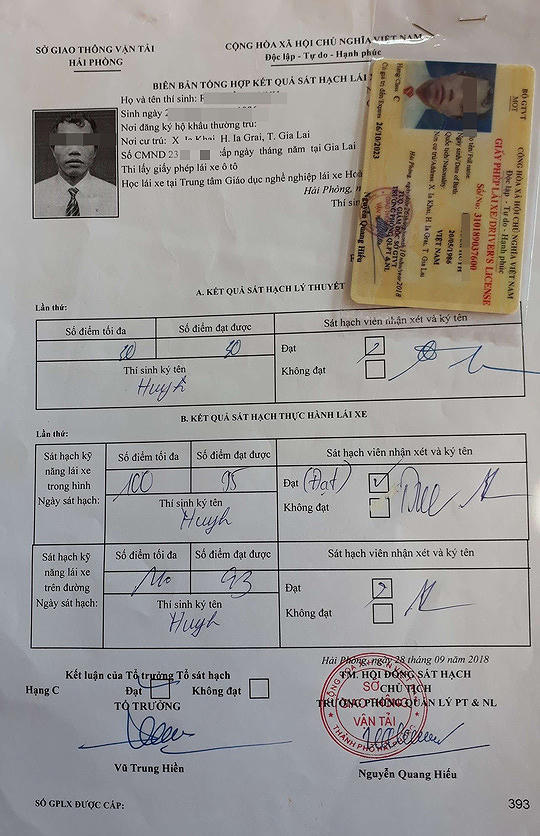 SỞ GIAO THÔNG VẬN TẢI
HẢI PHÒNG
CỘNG HÒA XÃ HỘI CHỦ NGHĨA VIỆT NAM
Độc lập - Tự do - Hạnh phúc
BIÊN BẢN TỔNG HỢP KẾT QUẢ SÁT HẠCH LÁI
Họ và tên thí sinh:
Sinh ngày
Nơi đăng ký hộ khẩu thường trú:
Nơi cư trú: X. Ia H. Ia Grai, T. Gia Lai
Số CMND 23 cấp ngày tháng năm tại Gia Lai
Thi lấy giấy phép lái xe ô tô
Học lái xe tại Trung tâm Giáo dục nghề nghiệp lái xe Hoà
Hải Phòng, n
Thí si
BỘ GTVT
MOT
CỘNG HÒA XÃ HỘI CHỦ NGHĨA VIỆT NAM
Độc lập - Tự do - Hạnh phúc
GIẤY PHÉP LÁI XE/DRIVER'S LICENSE
Số/No: 310189037600
Họ tên/Full name:
Ngày sinh/Date of Birth: 20/05/1986
Quốc tịch/Nationality: VIỆT NAM
Nơi cư trú/Address: X. Ia Khai, H. Ia Grai, T. Gia Lai
Hải Phòng, 2018
Hạng/Class: C
Có giá trị đến/Expires 26/10/2023
Nguyễn Quang Hiếu
A. KẾT QUẢ SÁT HẠCH LÝ THUYẾT
Lần thứ:
Số điểm tối đa Số điểm đạt được Sát hạch viên nhận xét và ký tên
30 30 Đạt
Không đạt
Thí sinh ký tên
Huynh
B. KẾT QUẢ SÁT HẠCH THỰC HÀNH LÁI XE
Lần thứ:
Sát hạch kỹ năng lái xe trong hình
Ngày sát hạch:
Số điểm tối đa Số điểm đạt được Sát hạch viên nhận xét và ký tên
100 95 Đạt (Đạt)
Không đạt
Thí sinh ký tên
Huynh
Sát hạch kỹ năng lái xe trên đường
Ngày sát hạch:
Số điểm tối đa Số điểm đạt được Sát hạch viên nhận xét và ký tên
100 93 Đạt
Không đạt
Thí sinh ký tên
Huynh
Hải Phòng, ngày 28 tháng 09 năm 2018
Kết luận của Tổ trưởng Tổ sát hạch
Hạng C Đạt Không đạt
TỔ TRƯỞNG
Vũ Trung Hiền
TM. HỘI ĐỒNG SÁT HẠCH
CHỦ TỊCH
TRƯỞNG PHÒNG QUẢN LÝ PT & NL
SỞ
VẬN TẢI
THÀNH PHỐ HẢI
Nguyễn Quang Hiếu
SỐ GPLX ĐƯỢC CẤP:
393